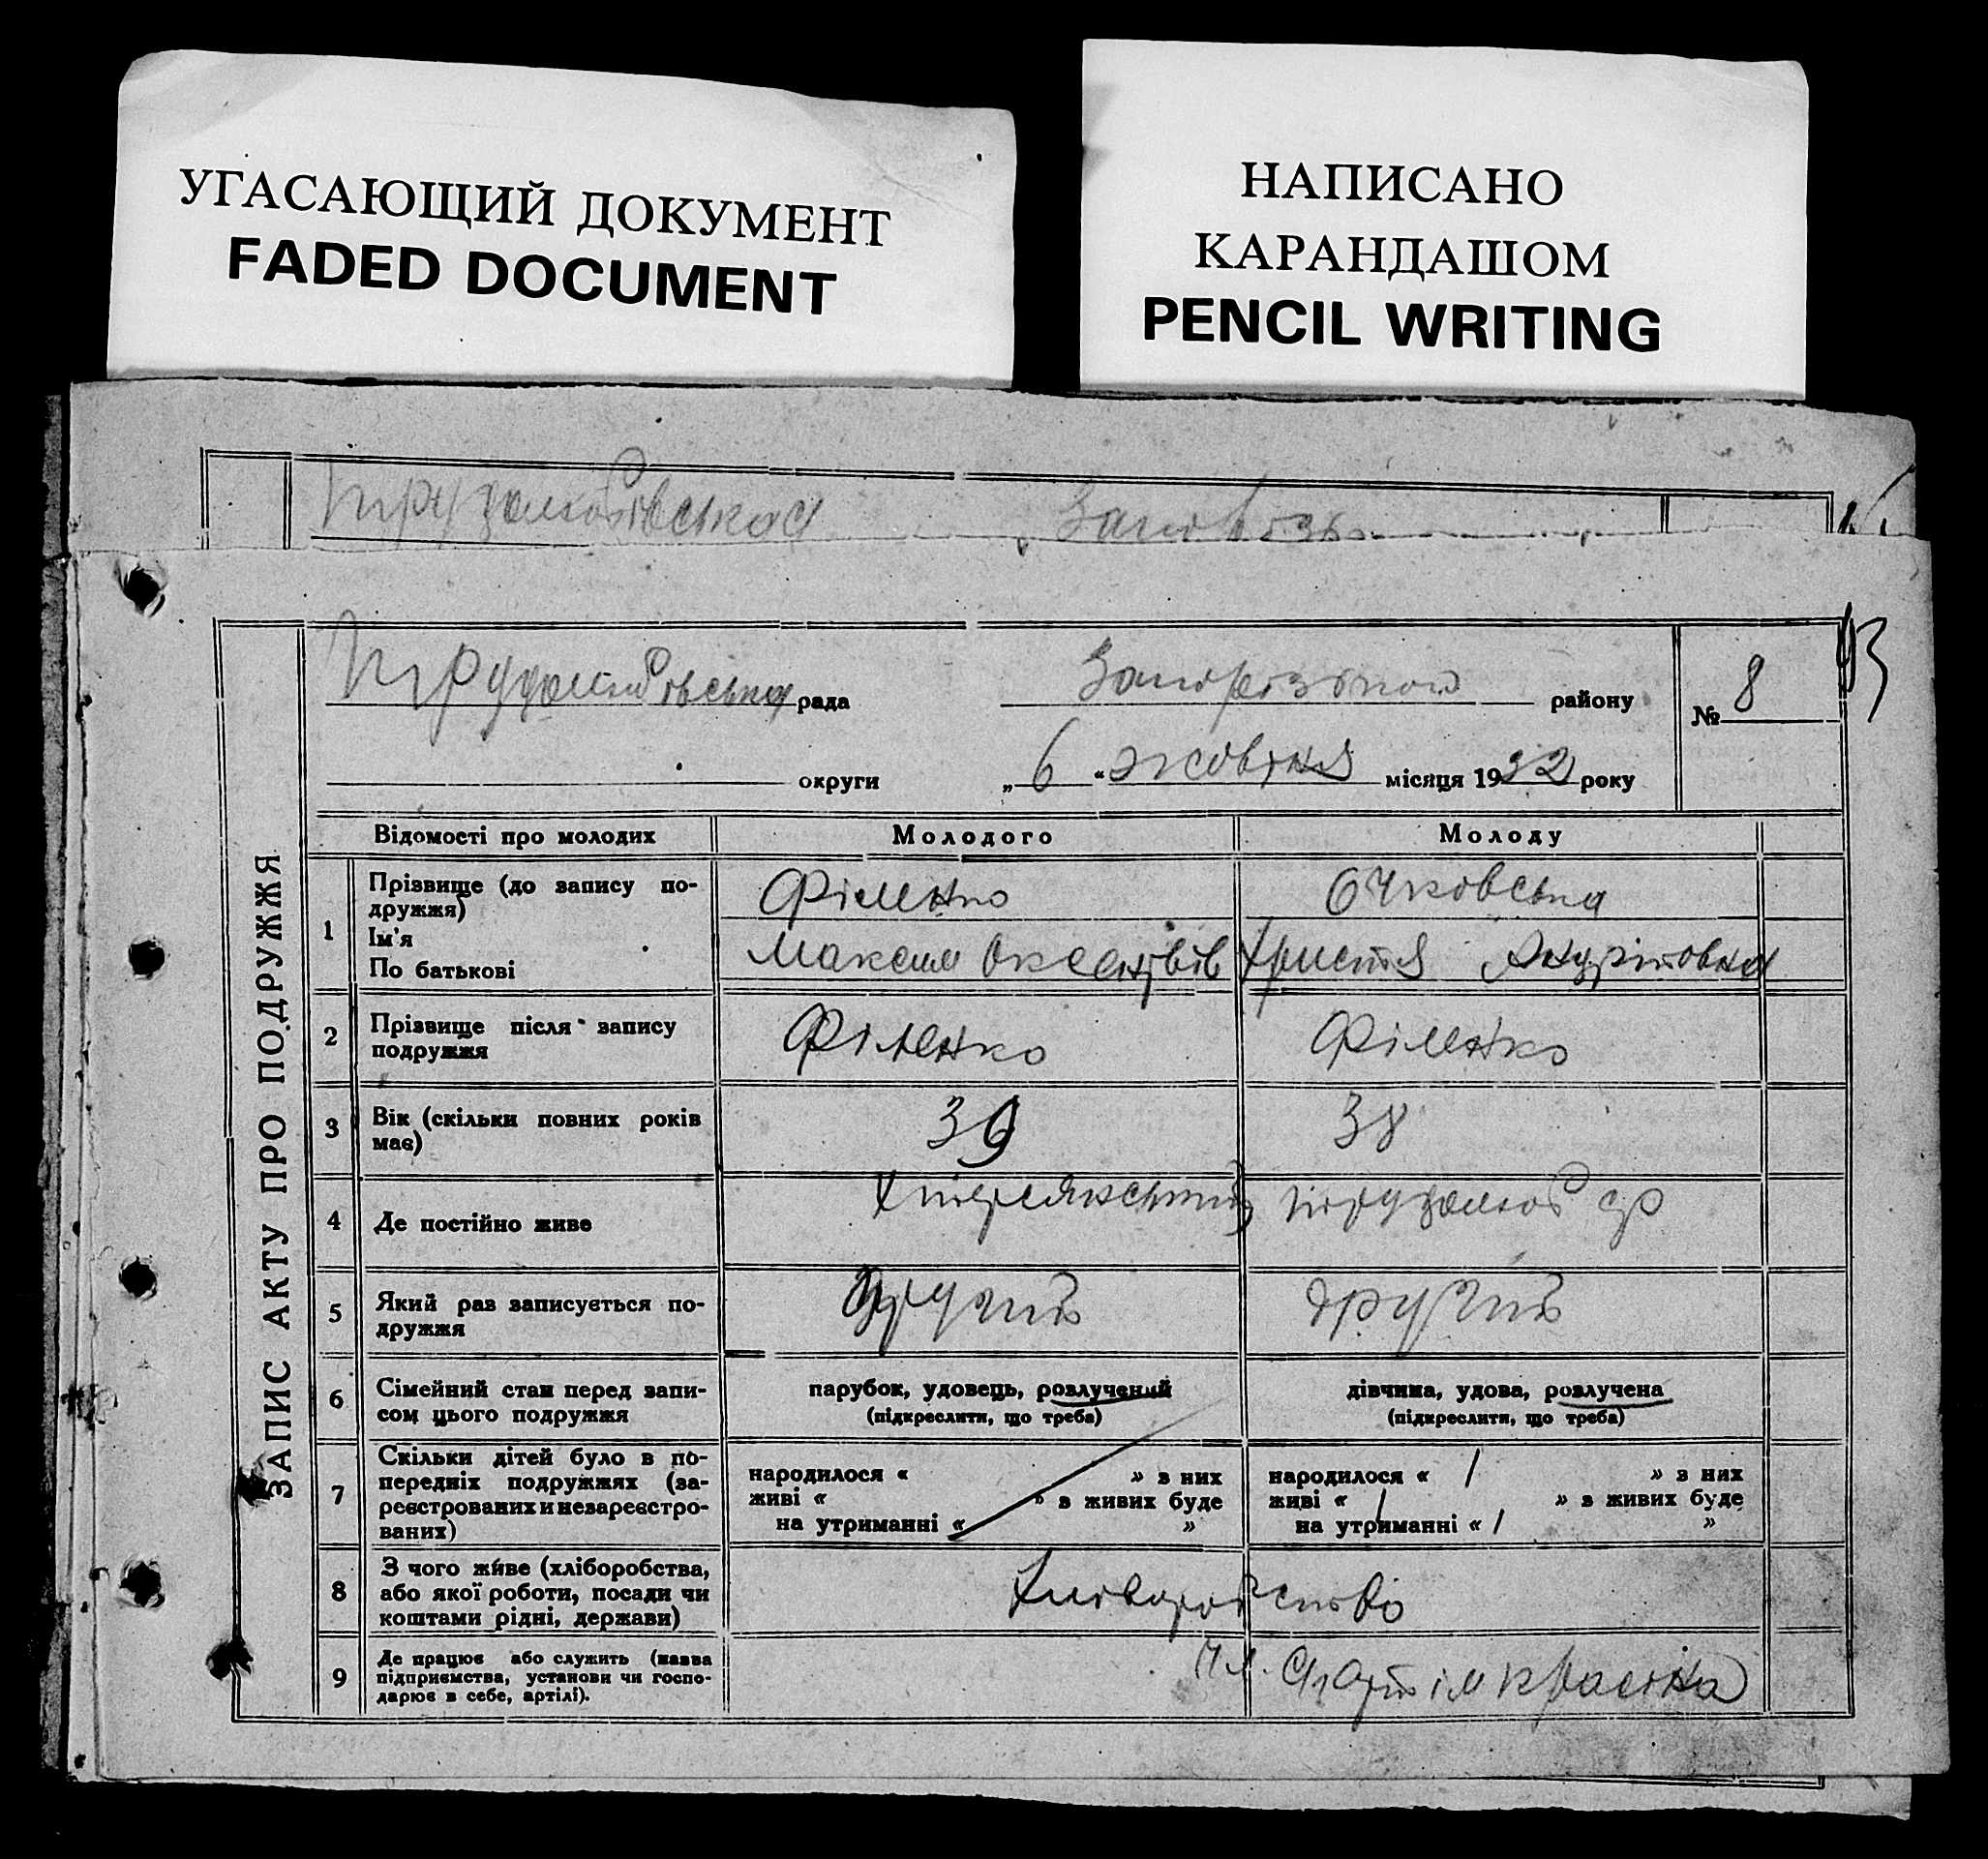 УГАСАЮЩИЙ ДОКУМЕНТ
FADED DOCUMENT
НАПИСАНО
КАРАНДАШОМ
PENCIL WRITING
93
рада
району
№ 8
округи „ 6 “ жовтня місяця 1932 року
ЗАПИС АКТУ ПРО ПОДРУЖЖЯ
Відомості про молодих Молодого Молоду
1 Прізвище (до запису по-
дружжя)
Ім'я
По батькові
Філенко Очковська
Максим Христя
2 Прізвище після запису
подружжя
Філенко Філенко
3 Вік (скільки повних років
має)
39 38
4 Де постійно живе
5 Який раз записується по-
дружжя
другий другий
6 Сімейний стан перед запи-
сом цього подружжя
парубок, удовець, розлучений
(підкреслити, що треба)
дівчина, удова, розлучена
(підкреслити, що треба)
7 Скільки дітей було в по-
передніх подружжях (за-
реєстрованих и незареєстро-
ваних)
народилося « » з них
живі « » з живих буде
на утриманні « »
народилося « 1 » з них
живі « 1 » з живих буде
на утриманні « 1 »
8 З чого живе (хліборобства,
або якої роботи, посади чи
коштами рідні, держави)
9 Де працює або служить (назва
підприємства, установи чи госпо-
дарює в себе, артілі).